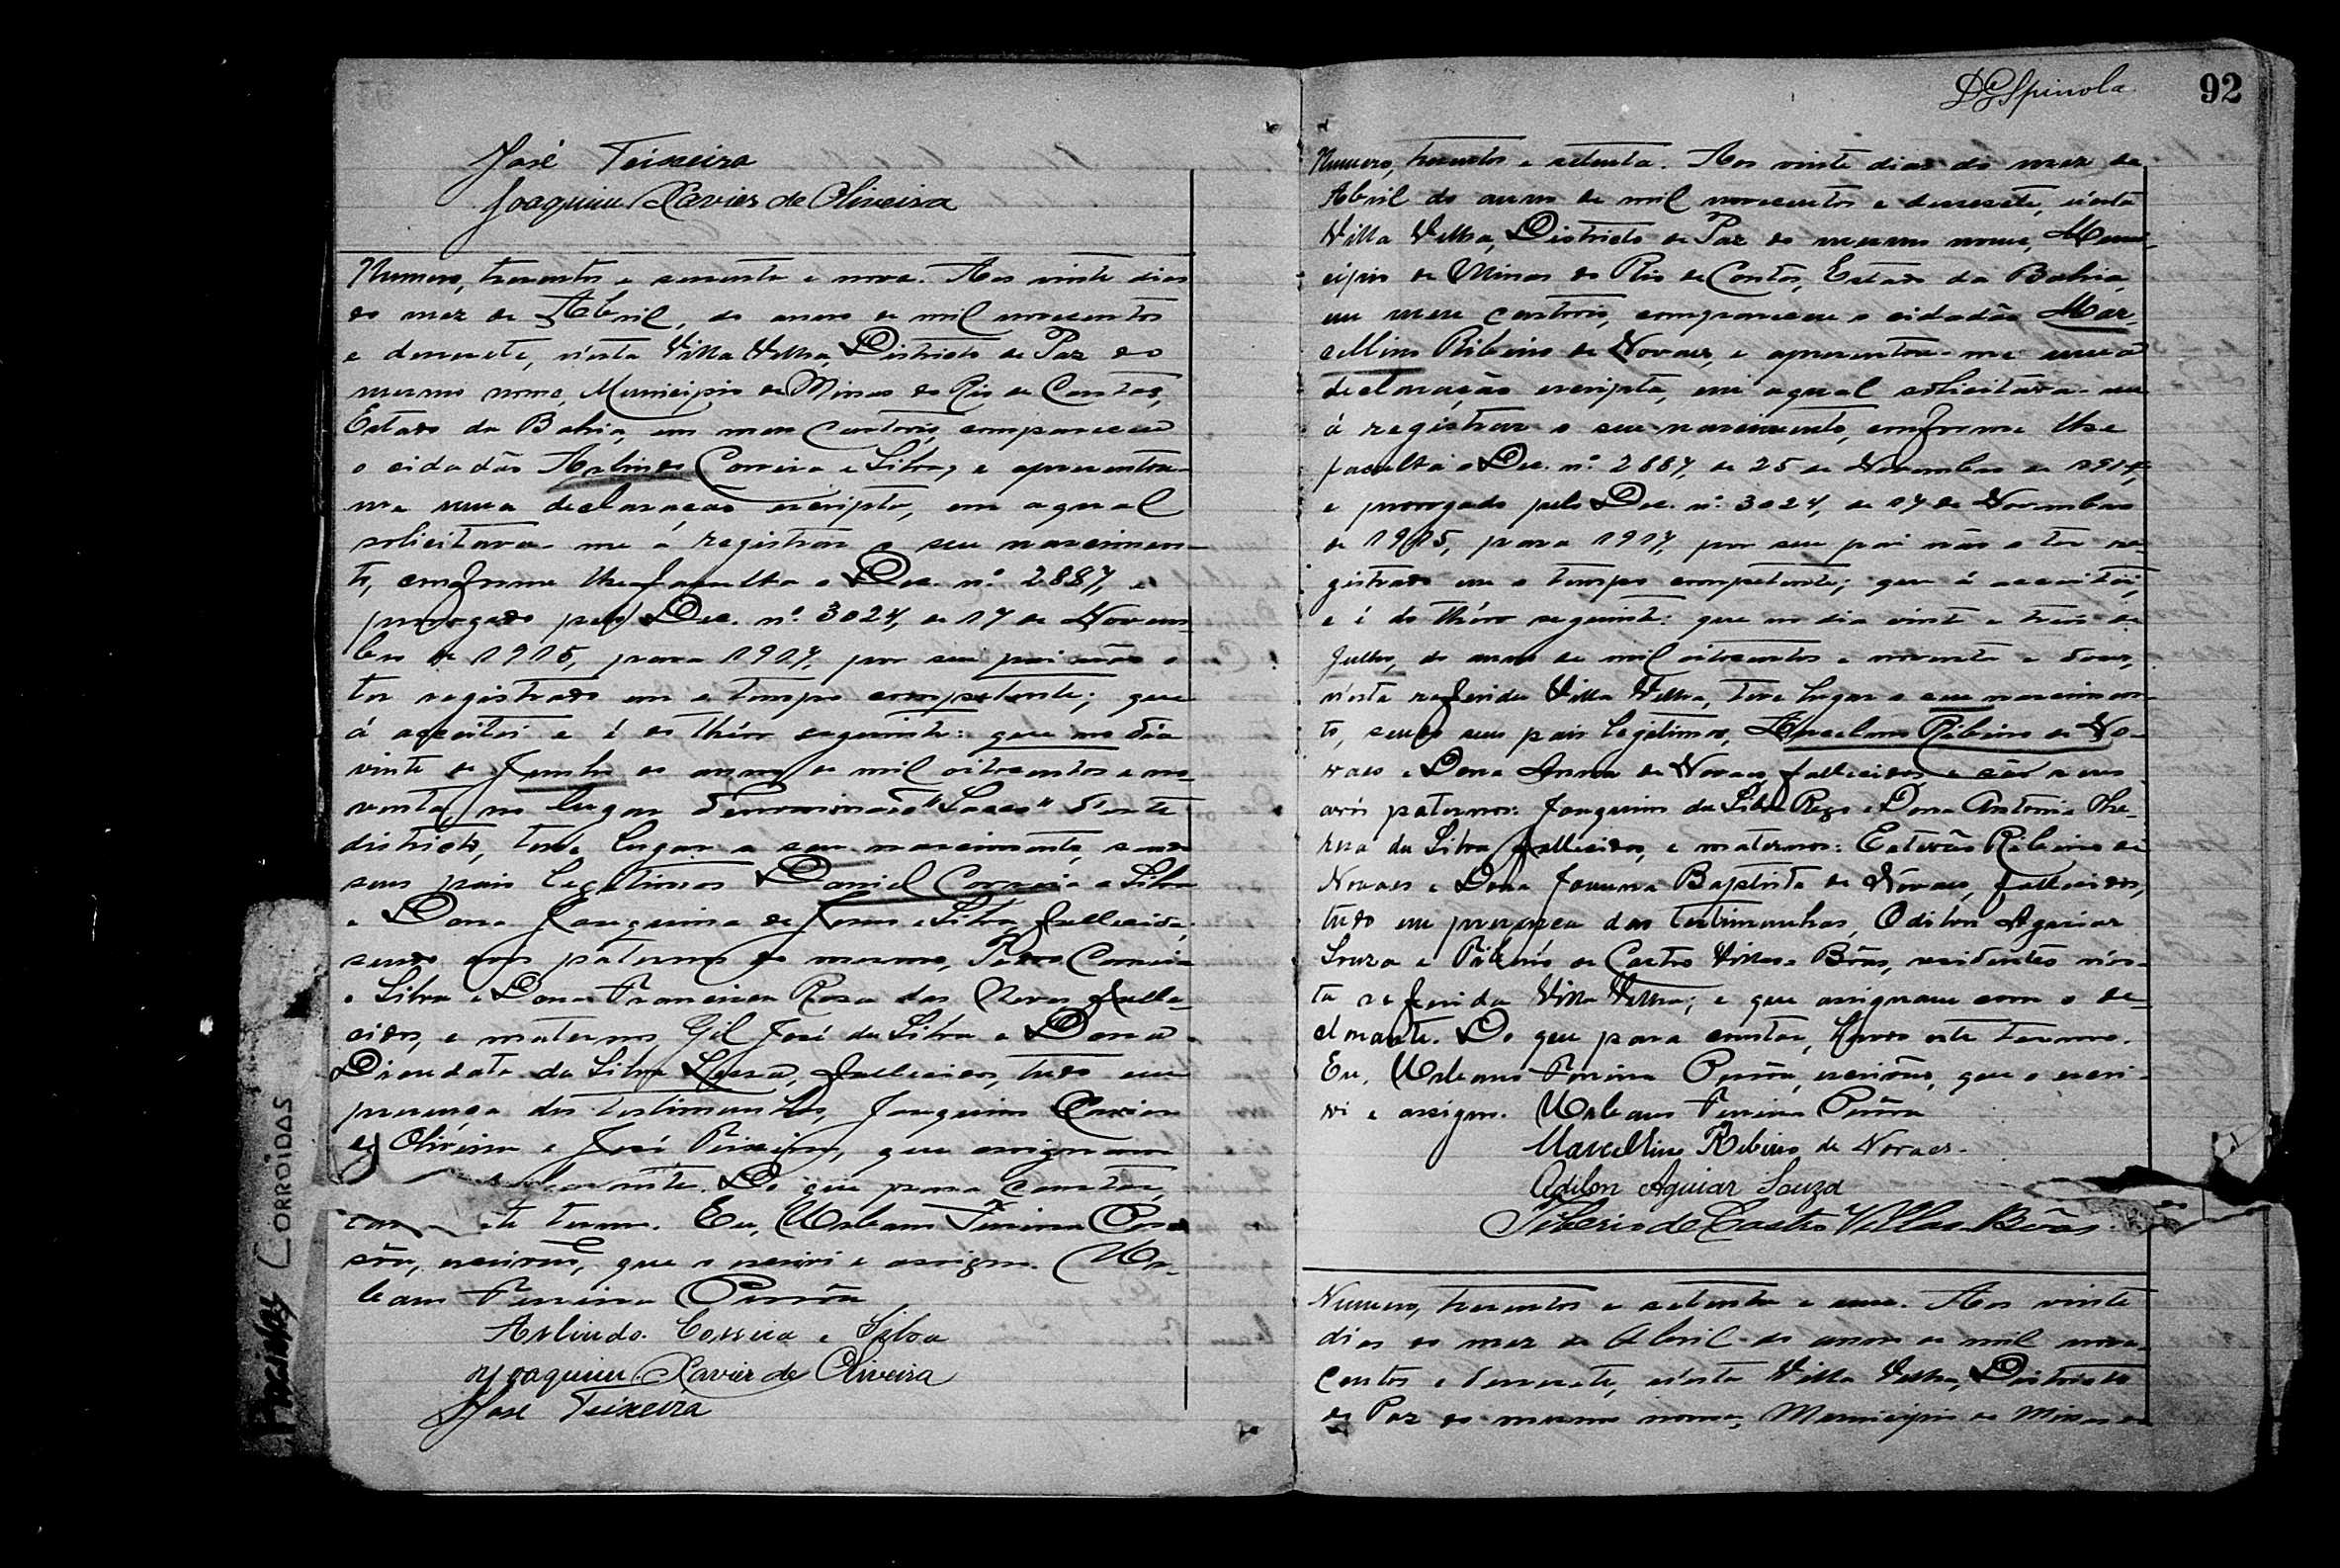 José Teixeira
Joaquim Xavier de Oliveira
Numero, trezentos e sessenta e nove. Aos vinte dias
do mez de Abril, do anno de mil novecentos
e dezesete, n'esta Villa Velha, Districto de Paz do
mesmo nome, Municipio de Minas do Rio de Contas,
Estado da Bahia, em meu Cartorio, compareceu
o cidadão Arlindo Correia e Silva, e apresentou-
me uma declaração escripta, em a qual
solicitava-me a registrar o seu nascimen-
to, conforme lhe faculta o Dec. nº 2887, e
prorogado pelo Dec. nº 3024, de 17 de Novem-
bro de 1915, para 1917, por seu pai não o
ter registrado em o tempo competente; que
á acceitei e é do théor seguinte: que no dia
vinte de Junho do anno de mil oitocentos e no-
venta, no lugar denominado "Sacco" d'este
districto, teve lugar o seu nascimento, sendo
seus pais legitimos Daniel Correia e Silva
e Dona Joaquina de e Silva, fallecida,
sendo avós paternos do mesmo, Pedro Correia
e Silva e Dona Francisca Rosa das Neves, falle-
cidos, e maternos, Gil José da Silva e Dona
da Silva fallecidos, tudo em
presença das testimunhas, Joaquim Xavier
de Oliveira e José Teixeira, que assignam
Do que para constar,
termo. Eu, Urbano Ferreira
escrivão, que o escrevi e assigno. Ur-
bano Ferreira
Arlindo Correia e Silva
Joaquim Xavier de Oliveira
José Teixeira
PAGINAS CORROIDAS
D Spinola
92
Numero, trezentos e setenta. Aos vinte dias do mez de
Abril do anno de mil novecentos e dezesete, n'esta
Villa Velha, Districto de Paz do mesmo nome, Muni-
cipio de Minas do Rio de Contas, Estado da Bahia,
em meu cartorio, compareceu o cidadão Mar-
cellino Ribeiro de Novaes, e apresentou-me uma
declaração escripta, em a qual solicitava-me
á registrar o seu nascimento, conforme lhe
faculta o Dec. nº 2887, de 25 de Novembro de 1914,
e prorogado pelo Dec. nº 3024, de 17 de Novembro
de 1915, para 1917, por seu pai não o ter re-
gistrado em o tempo competente; que á acceitei,
e é do théor seguinte: que no dia vinte e tres de
Julho, do anno de mil oitocentos e noventa e dous,
n'esta referida Villa Velha, teve lugar o seu nascimen-
to, sendo seus pais legitimos, Ribeiro de No-
vaes e Dona Anna de Novaes, fallecidos, e são seus
avós paternos: Joaquim da Silva Rego e Dona Antonia The-
reza da Silva, fallecidos, e maternos: Estevão Ribeiro de
Novaes e Dona Joanna Baptista de Novaes, fallecidos,
tudo em presença das testimunhas, Odilon Aguiar
Souza e Tiberio de Castro Villas-Bôas, residentes n'es-
ta referida Villa Velha; e que assignam com o de-
clarante. Do que para constar, lavro este termo.
Eu, Urbano Ferreira escrivão, que o escre-
vi e assigno. Urbano Ferreira
Marcellino Ribeiro de Novaes.
Odilon Aguiar Souza
Tiberio de Castro Villas-Bôas.
Numero, trezentos e setenta e um. Aos vinte
dias do mez de Abril do anno de mil nove-
centos e dezesete, n'esta Villa Velha, Districto
de Paz do mesmo nome, Municipio de Minas do